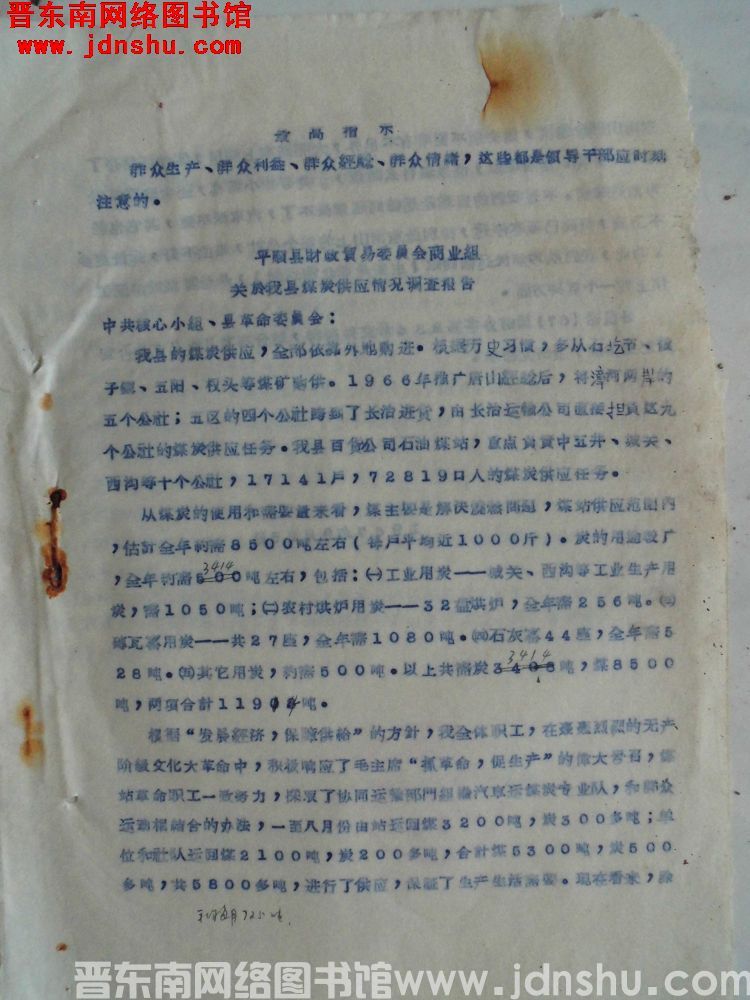 晋东南网络图书馆
www.jdnshu.com
最高指示
群众生产、群众利益、群众经验、群众情绪，这些都是领导干部应时刻
注意的。
平顺县财政贸易委员会商业组
关於我县煤炭供应情况调查报告
中共核心小组、县革命委员会：
我县的煤炭供应，全部依靠外地购进。根据历史习惯，多从石圪节、
子镇、五阳、权头等煤矿购供。1966年推广唐山经验后，将漳河两岸的
五个公社；五区的四个公社跨到了长治进货，由长治运输公司直接担负这九
个公社的煤炭供应任务。我县百货公司石油煤站，重点负责中五井、城关、
西沟等十个公社，17141户，72819口人的煤炭供应任务。
从煤炭的使用和需要量来看，煤主要是解决烧燃问题，煤站供应范围内
，估計全年約需8500吨左右（每户平均近1000斤）。炭的用途较广
，全年約需3414吨左右，包括：㈠工业用炭——城关、西沟等工业生产用
炭，需1050吨；㈡农村烘炉用炭——32盘烘炉，全年需256吨。㈢
砖瓦窑用炭——共27座，全年需1080吨。㈣石灰窑44座，全年需5
28吨。㈤其它用炭，約需500吨。以上共需炭3414吨，煤8500
吨，两项合計11914吨。
根据“发展經济，保障供給”的方針，我全体职工，在轰轰烈烈的无产
阶級文化大革命中，积极响应了毛主席“抓革命，促生产”的偉大号召，煤
站革命职工一致努力，採取了协同运输部門組織汽車运煤炭专业队，和群众
运动相結合的办法，一至八月份由站运回煤3200吨，炭300多吨；单
位和社队运回煤2100吨，炭200多吨，合計煤5300吨，炭500
多吨，共5800多吨，进行了供应，保証了生产生活需要。現在看来，除
平均每月725吨
晋东南网络图书馆www.jdnshu.com